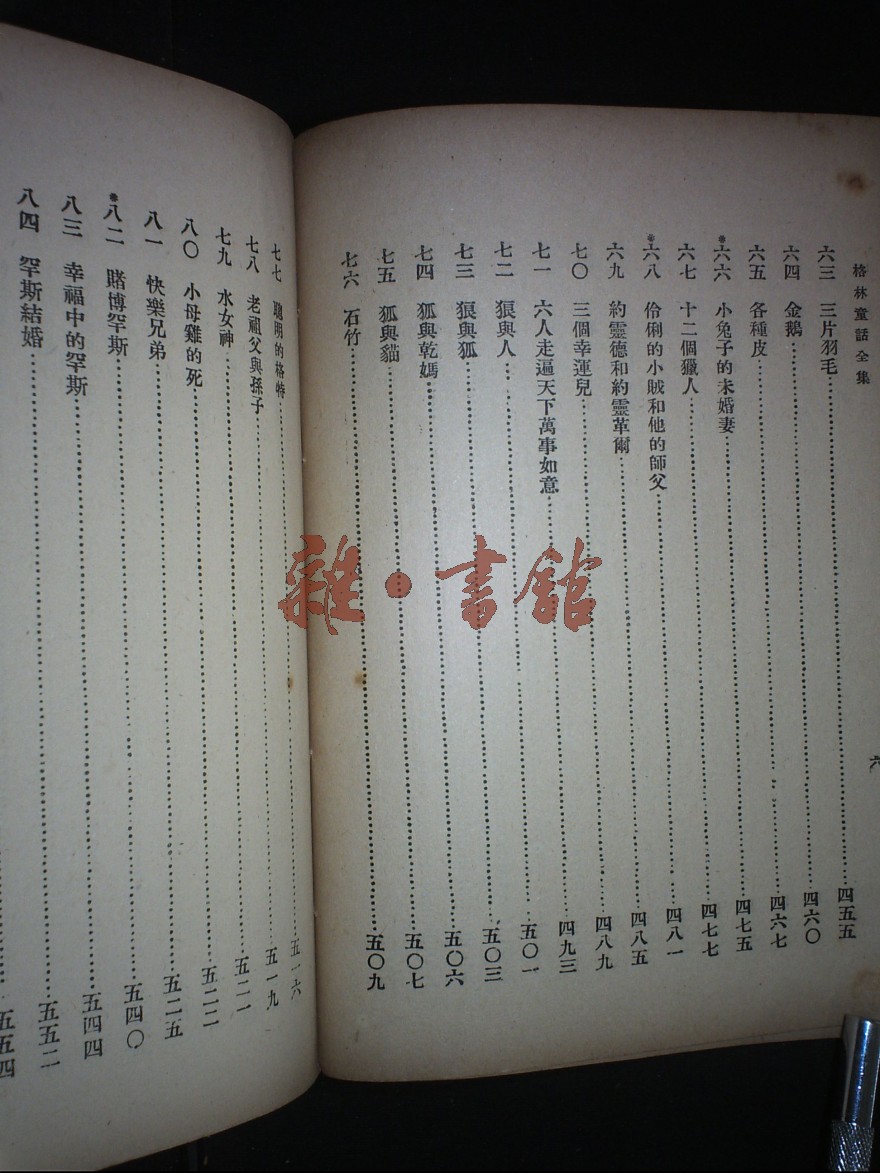 格林童話全集
六
六三 三片羽毛……四五五
六四 金鵝……四六〇
六五 各種皮……四六七
*六六 小兔子的未婚妻……四七五
六七 十二個獵人……四七七
*六八 伶俐的小賊和他的師父……四八一
六九 約靈德和約靈革爾……四八五
七〇 三個幸運兒……四八九
七一 六人走遍天下萬事如意……四九三
七二 狼與人……五〇一
七三 狼與狐……五〇三
七四 狐與乾媽……五〇六
七五 狐與貓……五〇七
七六 石竹……五〇九
七七 聰明的格特……五一六
七八 老祖父與孫子……五一九
七九 水女神……五二一
八〇 小母雞的死……五二二
八一 快樂兄弟……五二五
*八二 賭博罕斯……五四〇
八三 幸福中的罕斯……五四四
八四 罕斯結婚……五五二
五五四
雜·書館